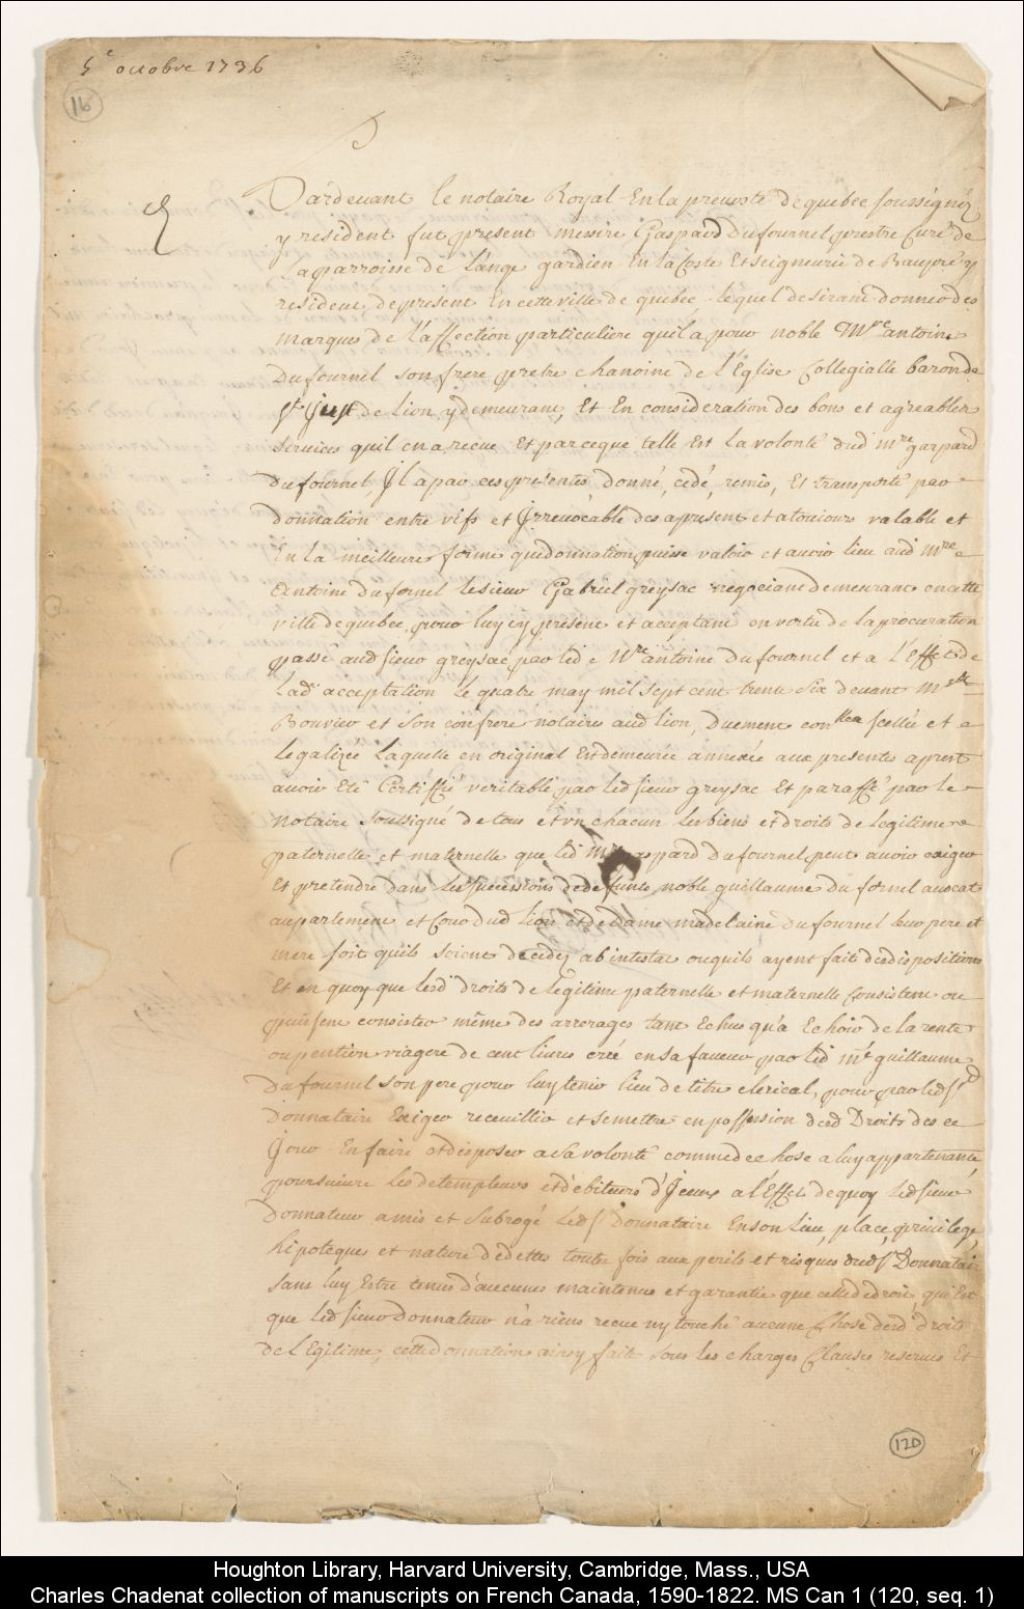 5e octobre 1736
16
Pardevant le notaire Royal En la prevosté de quebec soussigné
y resident fut present messire Gaspard Dufournel prestre Curé de
La parroisse de L'ange gardien En la Coste Et seigneurie de Beaupré y
resident, de present En cette ville de quebec, lequel desirant donner des
marques de l'affection particuliere qu'il a pour noble Mre antoine
Dufournel son frere pretre chanoine de l'Eglise Collegialle baron de
st Just de Lion y demeurant, Et En consideration des bons et agreables
services quil en a receu Et parceque telle Est la volonté dud mre gaspard
Dufournel, Il a par ces presentes donné, cedé, remis, Et transporté par
donnation entre vifs et Irrevocable des apresent et a toujours valable et
En la meilleure forme que donnation puisse valoir et avoir lieu aud mre
Antoine Dufornel le sieur Gabriel greysac negociant demeurant en cette
ville de quebec, pour luy cy present et acceptant en vertu de la procuration
passé aud sieur greysac par led Mre antoine Dufournel et a l'Effet de
Lad acceptation Le quatre may mil sept cent trente Six devant
Bouvier et Son confrere notaires aud lion, Duement scellée et
legalizée Laquelle en original Est demeurée annexée aux presentes apres
avoir Eté Certiffié veritable par led sieur greysac Et paraffé par le
Notaire Soussigné de tous et un chacun les biens et droits de legitime
paternelle et maternelle que led gaspard Dufournel peut avoir exiger
Et pretendre dans les successions de defunt noble guillaume du fornel avocat
au parlement et Cour dud Lion et de dame madelaine Dufournel leur pere et
mere soit quils soient decedez abintestat ou quils ayent fait des dispositions
Et en quoy que lesd droits de legitime paternelle et maternelle Consistent ou
puissent consister même des arrerages tant Echus qu'a Echoir de la rente
ou pention viagere de cent livres créé en sa faveur par led mre guillaume
Dufournel son pere pour luy tenir lieu de titre clerical, pour par led sr
Donnataire Exiger receuillir et se mettre en possession desd Droits des ce
Jour En faire et disposer a sa volonté comme de chose a luy appartenante
poursuivre les detempteurs et debiteurs d'Iceux a l'Effet de quoy led sieur
Donnateur a mis et Subrogé led s Donnataire En son Lieu, place, privilege,
hipoteques et nature de dettes toutes fois aux perils et risques dud s Donnatai
sans luy Estre tenus d'aucunes maintenue et garantie que celle de droit, qui Est
que led sieur donnateur n'a riens receu ny touché aucune Chose desd droits
de LEgitime, cette donnation ainsy faite sous les charges Clauses reserves Et
120
Houghton Library, Harvard University, Cambridge, Mass., USA
Charles Chadenat collection of manuscripts on French Canada, 1590-1822. MS Can 1 (120, seq. 1)